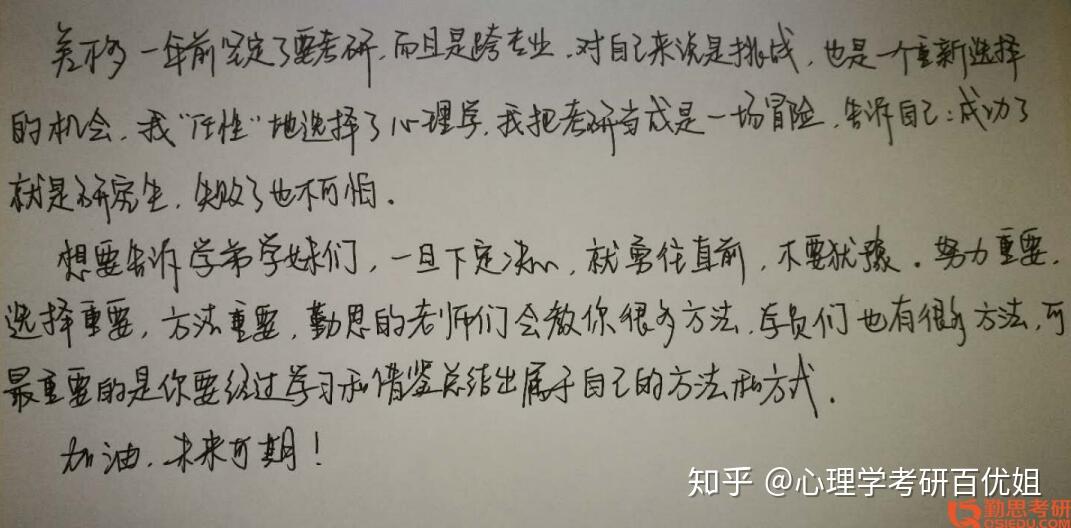 差不多一年前坚定了要考研,而且是跨专业,对自己来说是挑战,也是一个重新选择
的机会,我“任性”地选择了心理学,我把考研当成是一场冒险,告诉自己:成功了
就是研究生,失败了也不可怕.
想要告诉学弟学妹们,一旦下定决心,就勇往直前,不要犹豫.努力重要,
选择重要,方法重要,勤思的老师们会教你很多方法,学员们也有很多方法,可
最重要的是你要经过学习和借鉴总结出属于自己的方法和方式.
加油,未来可期!
知乎 @心理学考研百优姐
勤思考研
QSIEDU.COM